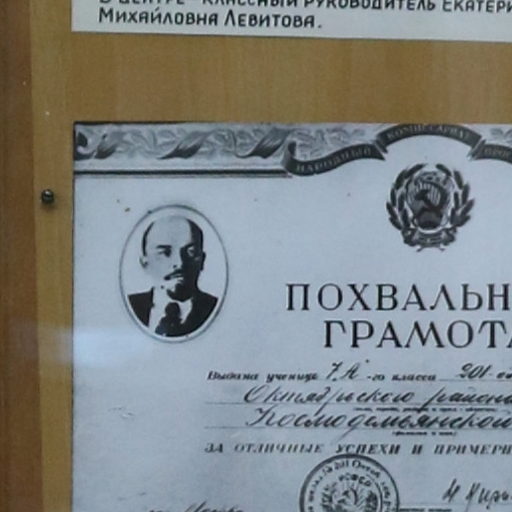 В ЦЕНТРЕ - КЛАССНЫЙ РУКОВОДИТЕЛЬ ЕКАТЕРИ
МИХАЙЛОВНА ЛЕВИТОВА.
НАРОДНЫЙ КОМИССАРИАТ ПРОС
ПОХВАЛЬН
ГРАМОТА
Выдана ученице 7 "А"-го класса 201
Октябрьского района
Космодемьянской
ЗА ОТЛИЧНЫЕ УСПЕХИ И ПРИМЕРН